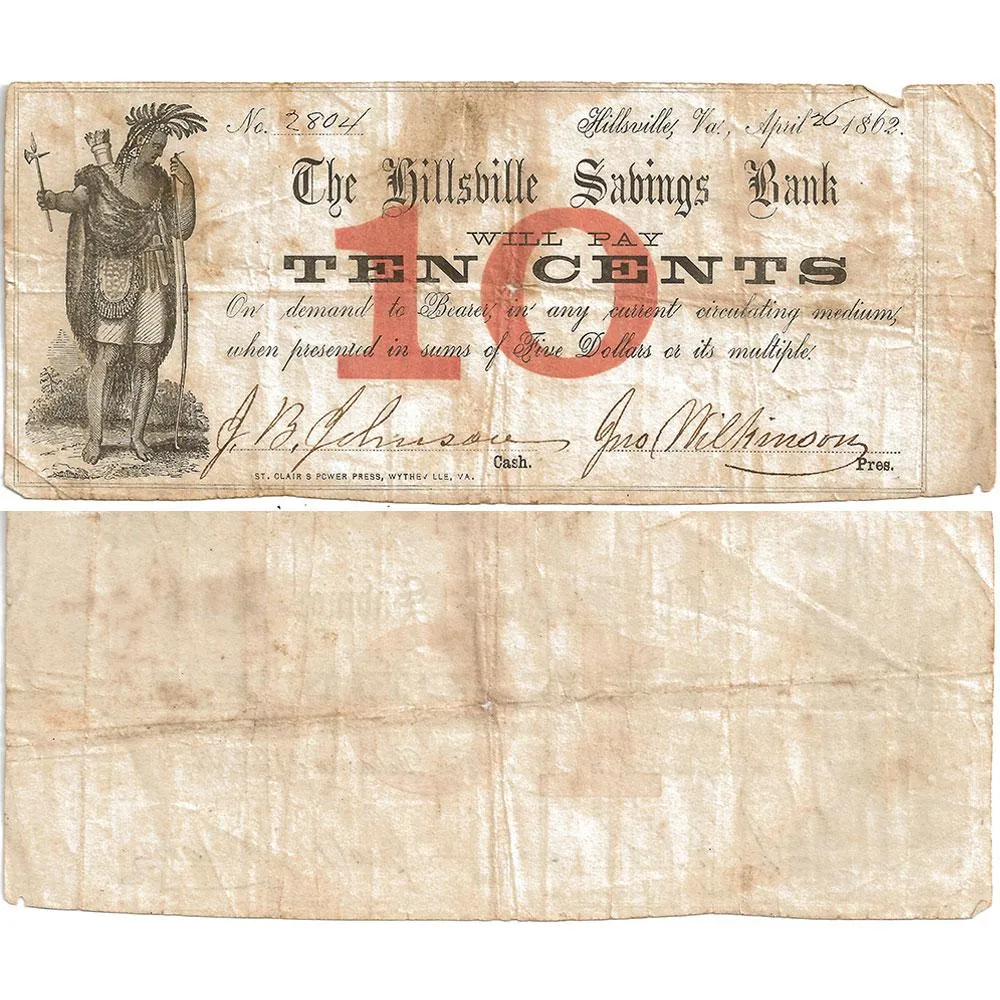 No. 2804 Hillsville, Va., April 26 1862.
The Hillsville Savings Bank
WILL PAY
10
TEN CENTS
On demand to Bearer, in any current circulating medium,
when presented in sums of Five Dollars or its multiple.
J. B. Johnson Jno Wilkinson
Cash. Pres.
ST. CLAIR'S POWER PRESS, WYTHEVILLE, VA.